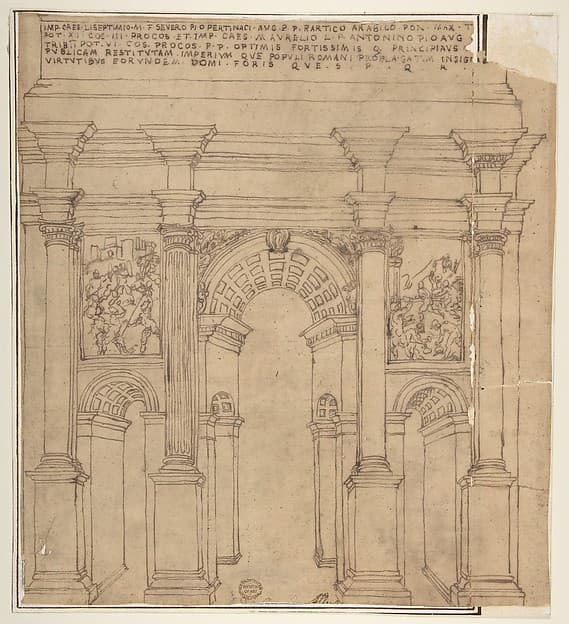 IMP. CAES. L. SEPTIMIO. M. F. SEVERO. P. I O. PERTINACI. AUG. P. P. PARTICO ARABICO PON. MAX. T
POT. XI COS. III. PROCOS. ET. IMP. CAES M. AVRELIO L. F. ANTONINO PIO AVG
TRIB POT. VI. COS. PROCOS. P. P. OPTIMIS FORTISSIMIS Q PRINCIPIAVS
PVBLICAM RESTITVTAM. IMPERIVM QVE POPVLI ROMANI PROPLAGATVM INSIG
VIRTVTIBVS EORVNDEM. DOMI. FORIS QVE S P. Q R